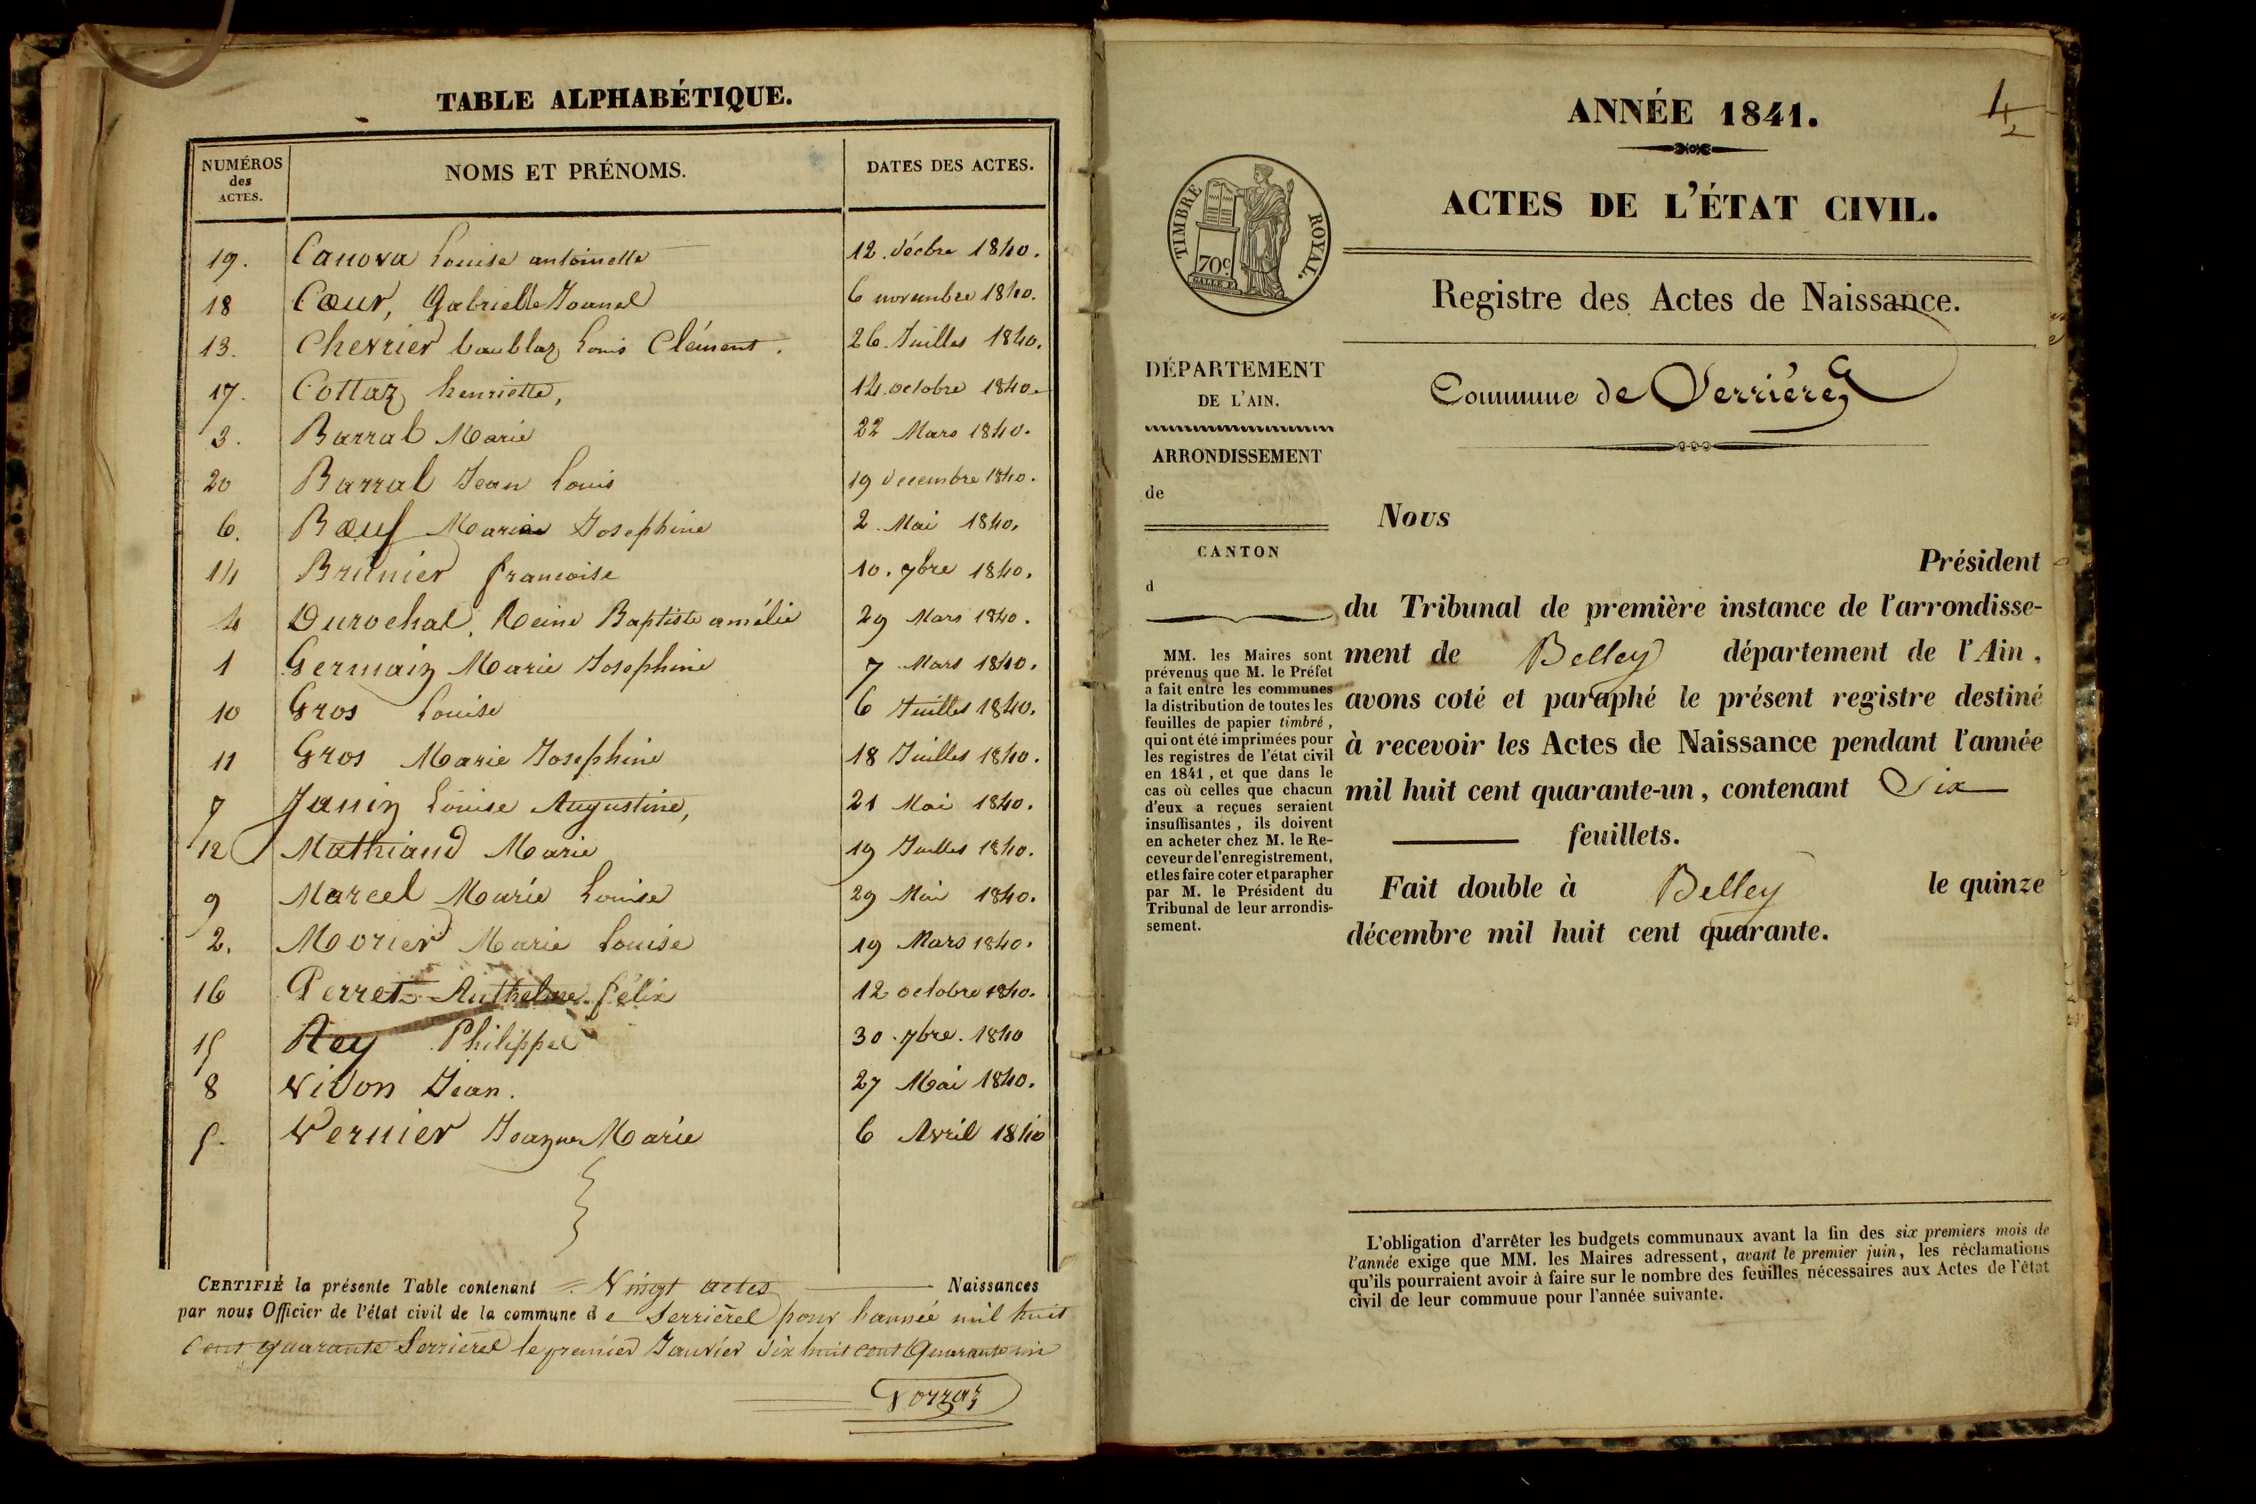 TABLE ALPHABÉTIQUE.
NUMÉROS des ACTES. NOMS ET PRÉNOMS. DATES DES ACTES.
19. Canova Louise antoinette 12. décbre 1840.
18 Cœur, Gabrielle 6 novembre 1840.
13. Chevrier Louis Clément. 26. Juillet 1840.
17. Cottaz henriette, 14. octobre 1840.
3. Barral Marie 22 Mars 1840.
20 Barral Jean Louis 19 decembre 1840.
6. Bœuf Marie Josephine 2. Mai 1840.
14 Brunier francoise 10. 7bre 1840.
4 Durochat, Reine Baptiste amélie 29 Mars 1840.
1 Germain Marie Josephine 7 Mars 1840.
10 Gros Louise 6 Juillet 1840.
11 Gros Marie Josephine 18 Juillet 1840.
7 Janin Louise Augustine, 21 Mai 1840.
12 Mathiand Marie 19 Juillet 1840.
9 Marcel Marie Louise 29 Mai 1840.
2. Morier Marie Louise 19 Mars 1840.
16 Perret Anthelme félix 12 octobre 1840.
15 Rey Philippe 30. 7bre. 1840
8 Vidon Jean. 27 Mai 1840.
5. Vernier Marie 6 Avril 1840
CERTIFIÉ la présente Table contenant Vingt actes Naissances
par nous Officier de l'état civil de la commune de Serrières pour l'année mil huit
Cent quarante Serrières le premier Janvier dix huit cent Quarante un
ANNÉE 1841.
ACTES DE L'ÉTAT CIVIL.
TIMBRE ROYAL.
70c
Registre des Actes de Naissance.
Commune de Serrières
DÉPARTEMENT
DE L'AIN.
ARRONDISSEMENT
de
CANTON
d
MM. les Maires sont
prévenus que M. le Préfet
a fait entre les communes
la distribution de toutes les
feuilles de papier timbré,
qui ont été imprimées pour
les registres de l'état civil
en 1841, et que dans le
cas où celles que chacun
d'eux a reçues seraient
insuffisantes, ils doivent
en acheter chez M. le Re-
ceveur de l'enregistrement,
et les faire coter et parapher
par M. le Président du
Tribunal de leur arrondis-
sement.
Nous
Président
du Tribunal de première instance de l'arrondisse-
ment de Belley département de l'Ain,
avons coté et paraphé le présent registre destiné
à recevoir les Actes de Naissance pendant l'année
mil huit cent quarante-un, contenant Six
feuillets.
Fait double à Belley le quinze
décembre mil huit cent quarante.
L'obligation d'arrêter les budgets communaux avant la fin des six premiers mois de
l'année exige que MM. les Maires adressent, avant le premier juin, les réclamations
qu'ils pourraient avoir à faire sur le nombre des feuilles nécessaires aux Actes de l'état
civil de leur commune pour l'année suivante.